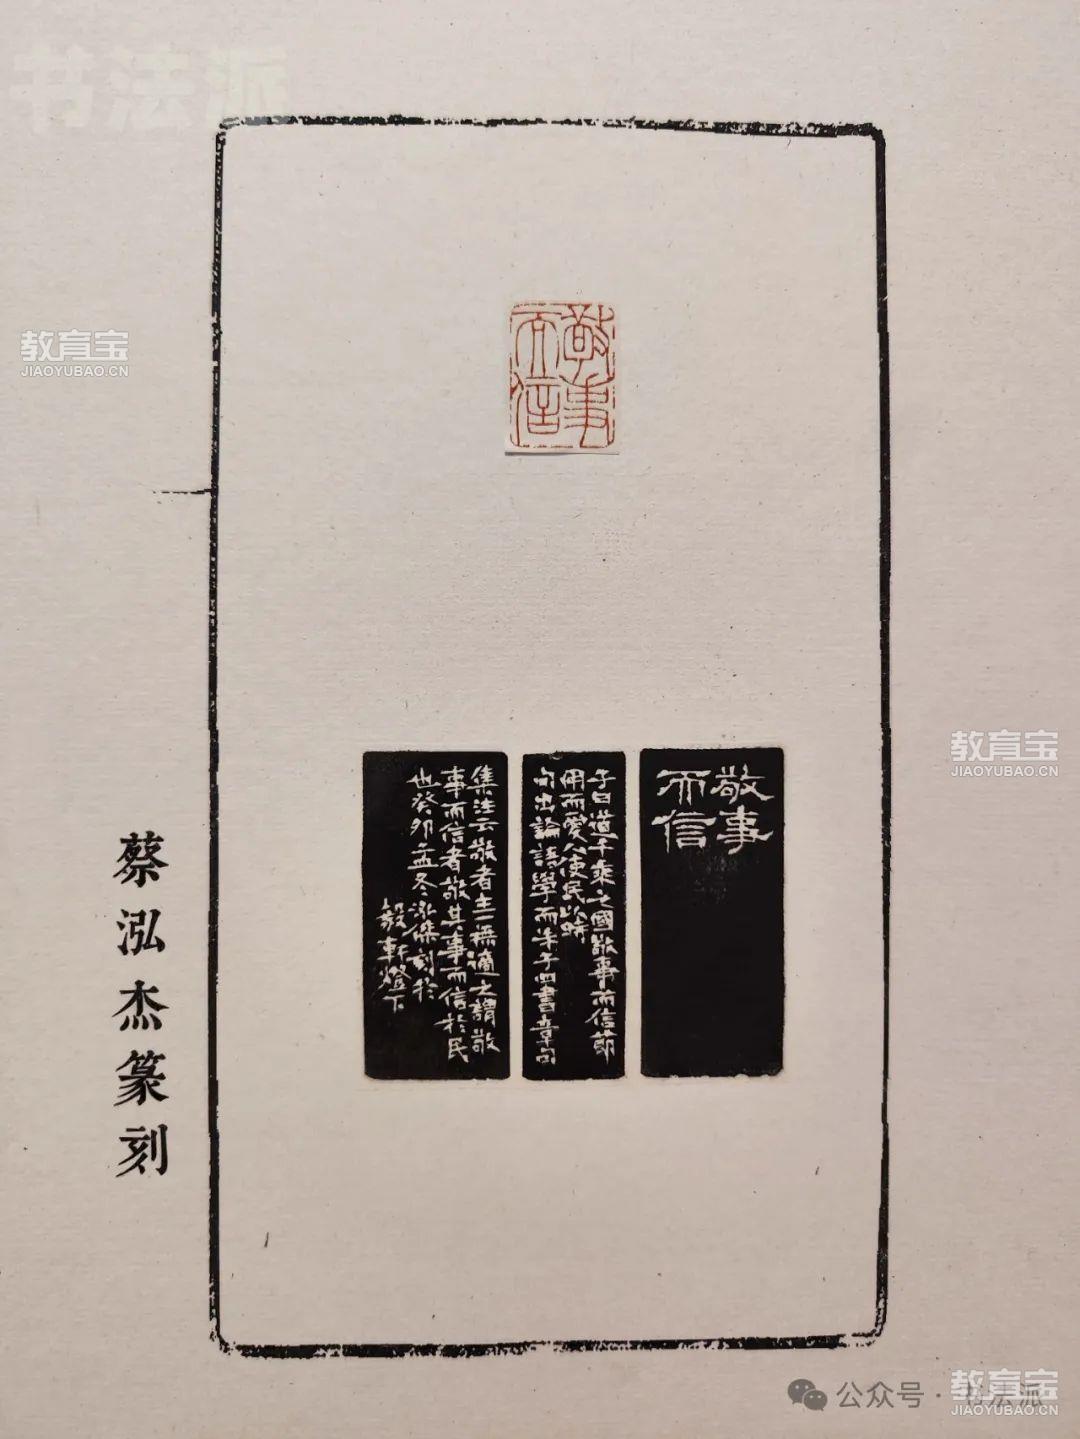 书法派
教育宝
JIAOYUBAO.CN
敬事
而信
敬事
而信
子曰道千乘之國敬事而信節
用而愛人使民以時
句出論語學而朱子四書章句
集注云敬者主一無適之謂敬
事而信者敬其事而信於民
也癸卯孟冬泓傑刻於
毅軒燈下
蔡泓杰篆刻
教育宝
JIAOYUBAO.CN
公众号·书法派
教育宝
JIAOYUBAO.CN